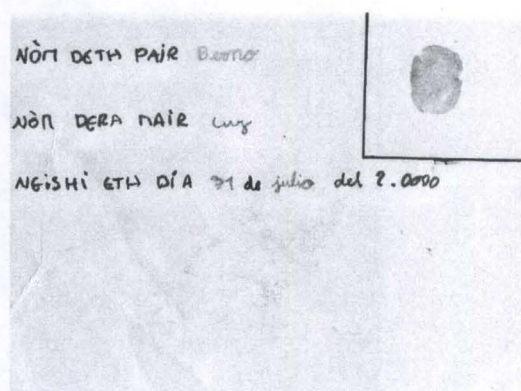 NÒM DETH PAIR
NÒM DERA MAIR Luz
NEISHÍ ETH DÍA 31 de julio del 2.0000